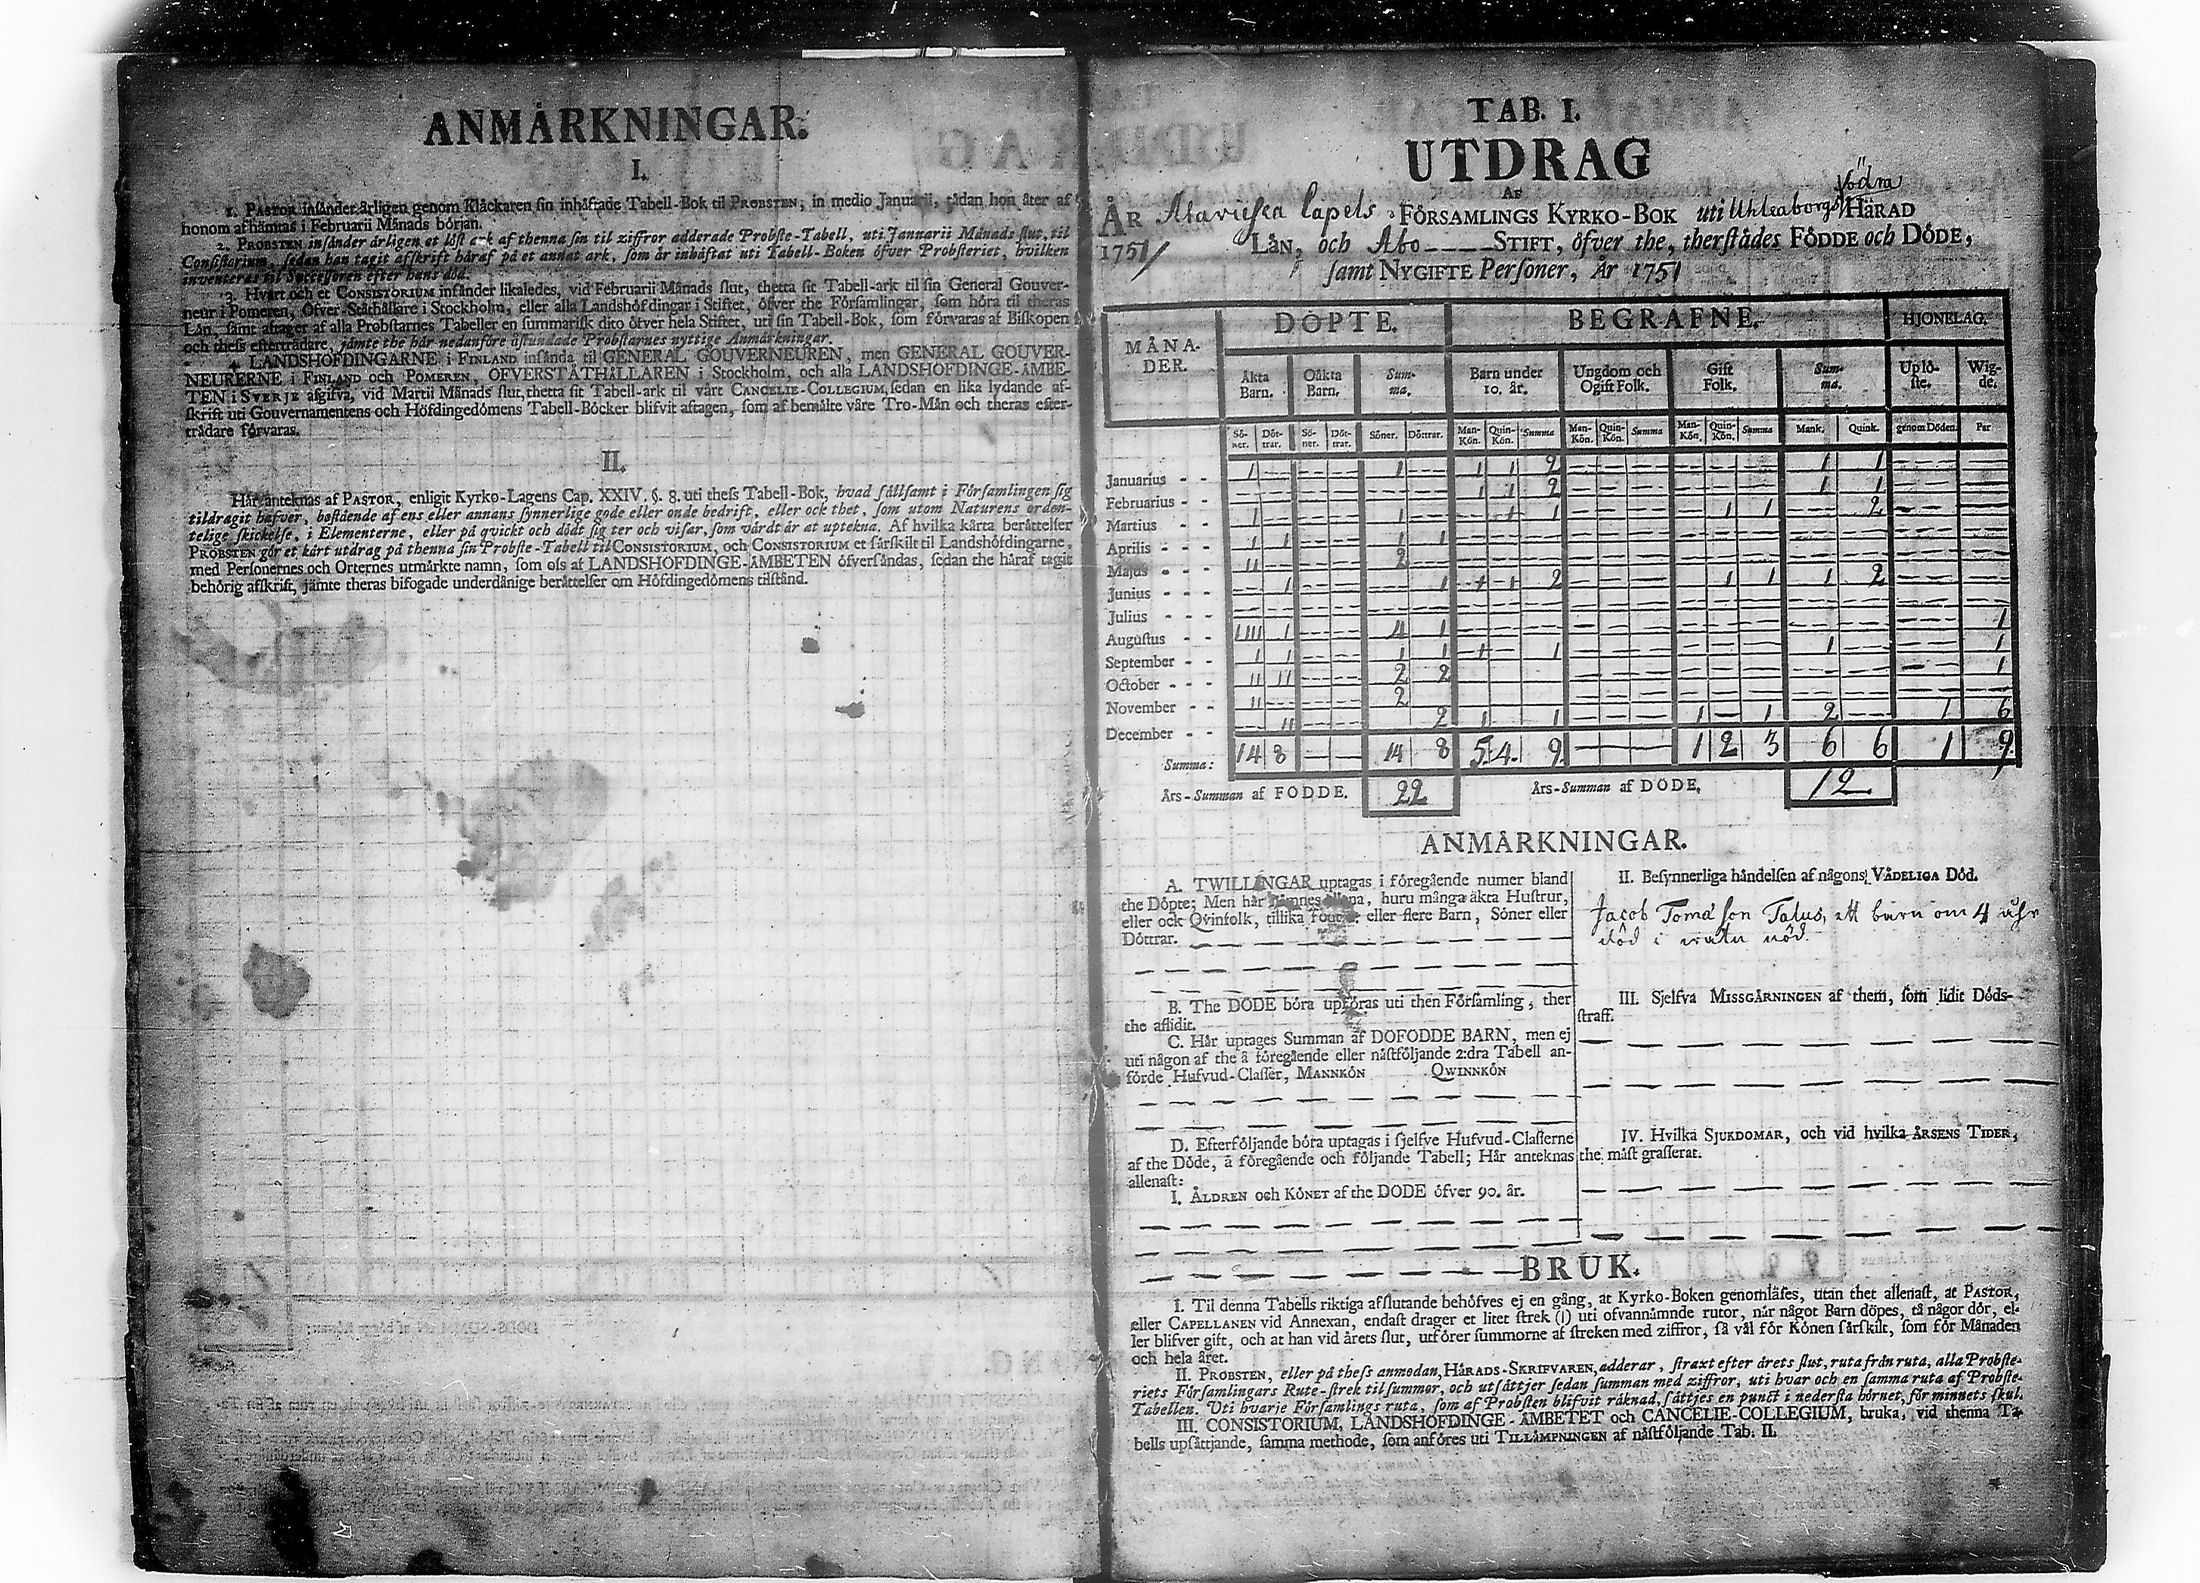 ANMÅRKNINGAR.
I.
1. PASTOR insånder årligen genom Klåckaren sin inhåftade Tabell-Bok til PROBSTEN, in medio Januarii, sådan hon åter af
honom afhämtas i Februarii Månads början.
2. PROBSTEN insånder årligen et löst ark af thenna sin til ziffror adderade Probste-Tabell, uti Januarii Månads slut, til
Consistorium, sedan han tagit afskrift håraf på et annat ark, som år inhåftat uti Tabell-Boken öfver Probsteriet, hvilken
inventeras til Successoren efter hans död.
3. Hvart och et CONSISTORIUM insånder likaledes, vid Februarii Månads slut, thetta sit Tabell-ark til sin General Gouver-
neur i Pomeren, Öfver-Ståthållare i Stockholm, eller alla Landshöfdingar i Stiftet, öfver the Församlingar, som höra til theras
Lån, samt aftager af alla Probstarnes Tabeller en summarisk dito öfver hela Stiftet, uti sin Tabell-Bok, som förvaras af Biskopen
och thess efterträdare, jämte the här nedanföre åstundade Probstarnes nyttige Anmärkningar.
4. LANDSHÖFDINGARNE i FINLAND insånda til GENERAL GOUVERNEUREN, men GENERAL GOUVER-
NEURERNE i FINLAND och POMEREN, ÖFVERSTÅTHÅLLAREN i Stockholm, och alla LANDSHÖFDINGE-ÅMBE-
TEN i SVERJE afgifva, vid Martii Månads slut, thetta sit Tabell-ark til vårt CANCELIE-COLLEGIUM, sedan en lika lydande af-
skrift uti Gouvernamentens och Höfdingedömens Tabell-Böcker blifvit aftagen, som af bemälte våre Tro-Mån och theras efter-
trådare förvaras.
II.
Hår antecknas af PASTOR, enligit Kyrko-Lagens Cap. XXIV. §. 8. uti thess Tabell-Bok, hvad sållsamt i Församlingen sig
tildragit hafver, bestående af ens eller annans synnerlige gode eller onde bedrift, eller ock thet, som utom Naturens orden-
telige skickelse, i Elementerne, eller på qvickt och dödt sig ter och visar, som vårdt år at uptekna. Af hvilka kårta beråttelser
PROBSTEN gör et kårt utdrag på thenna sin Probste-Tabell til CONSISTORIUM, och CONSISTORIUM et sårskilt til Landshöfdingarne,
med Personernes och Orternes utmårkte namn, som oss af LANDSHÖFDINGE-ÅMBETEN öfversåndas, sedan the håraf tagit
behörig afskrift, jämte theras bifogade underdånige beråttelser om Höfdingedömens tilstånd.
TAB. I.
UTDRAG
AF
Södra
ÅR Alavieska Capels FÖRSAMLINGS KYRKO-BOK uti Uhleaborgs HÄRAD
1751 LÅN, och Åbo STIFT, öfver the, therstådes FÖDDE och DÖDE,
samt NYGIFTE Personer, År 1751
MÅNA-
DER. DÖPTE. BEGRAFNE. HJONELAG.
Åkta Barn. Oåkta Barn. Sum-ma. Barn under 10. år. Ungdom och Ogift Folk. Gift Folk. Sum-ma. Uplö-ste. Wig-de.
Sö-ner. Döt-trar. Sö-ner. Döt-trar. Söner. Döttrar. Man-Kön. Quin-Kön. Summa Man-Kön. Quin-Kön. Summa Man-Kön. Quin-Kön. Summa Mank. Quink. genom Döden. Par
Januarius - - 1 1 1 1 2 1 1
Februarius - - 1 1 2 1 1
Martius - - 1 1 1 1 1 1 2
Aprilis - - 1 1 1 1
Majus - - 11 2
Junius - - 1 1 1 1 2 1 1 1 2
Julius - -
Augustus - - 1111 1 4 1 1
September - - 1 1 1 1 1 1 1 1
October - - - 11 11 2 2 1
November - - 11 2
December - - 11 2 1 1 1 1 2 1 6
Summa: 14 8 14 8 5 4 9 1 2 3 6 6 1 9
Års-Summan af FÖDDE. 22 Års-Summan af DÖDE. 12
ANMÅRKNINGAR.
A. TWILLINGAR uptagas i föregående numer bland
the Döpte; Men hår nämnes allena, huru många åkta Hustrur,
eller ock Qvinfolk, tillika födt 2 eller flere Barn, Söner eller
Döttrar.
B. The DÖDE böra upföras uti then Församling, ther
the aflidit.
C. Hår uptages Summan af DÖFÖDDE BARN, men ej
uti någon af the å föregående eller nåstföljande 2:dra Tabell an-
förde Hufvud-Classer, MANNKÖN QWINNKÖN
D. Efterföljande böra uptagas i sjelfve Hufvud-Classerne
af the Döde, å föregående och följande Tabell; Hår anteknas
allenast:
I. ÅLDREN och KÖNET af the DÖDE öfver 90. år.
II. Besynnerliga håndelsen af någons VÅDELIGA Död.
Jacob Tomasson Talus, ett barn om 4 åhr
död i watu nöd.
III. Sjelfva MISSGÅRNINGEN af them, som lidit Döds-
straff.
IV. Hvilka SJUKDOMAR, och vid hvilka ÅRSENS TIDER,
the måst grasserat.
BRUK.
I. Til denna Tabells riktiga afslutande behöfves ej en gång, at Kyrko-Boken genomläses, utan thet allenast, at PASTOR,
eller CAPELLANEN vid Annexan, endast drager et litet strek (I) uti ofvannämnde rutor, når något Barn döpes, tå någor dör, el-
ler blifver gift, och at han vid årets slut, utförer summorne af streken med ziffror, så vål för Könen sårskilt, som för Månaden
och hela året.
II. PROBSTEN, eller på thess anmodan, HÅRADS-SKRIFVAREN, adderar, straxt efter årets slut, ruta från ruta, alla Probste-
riets Församlingars Rute-strek til summor, och utsåttjer sedan summan med ziffror, uti hvar och en samma ruta af Probste-
Tabellen. Uti hvarje Församlings ruta, som af Probsten blifvit råknad, såttjes en punct i nedersta hörnet, för minnets skul.
III. CONSISTORIUM, LANDSHÖFDINGE-ÅMBETET och CANCELIE-COLLEGIUM, bruka, vid thenna Ta-
bells upsåttjande, samma methode, som anföres uti TILLÅMPNINGEN af nåstföljande Tab. II.